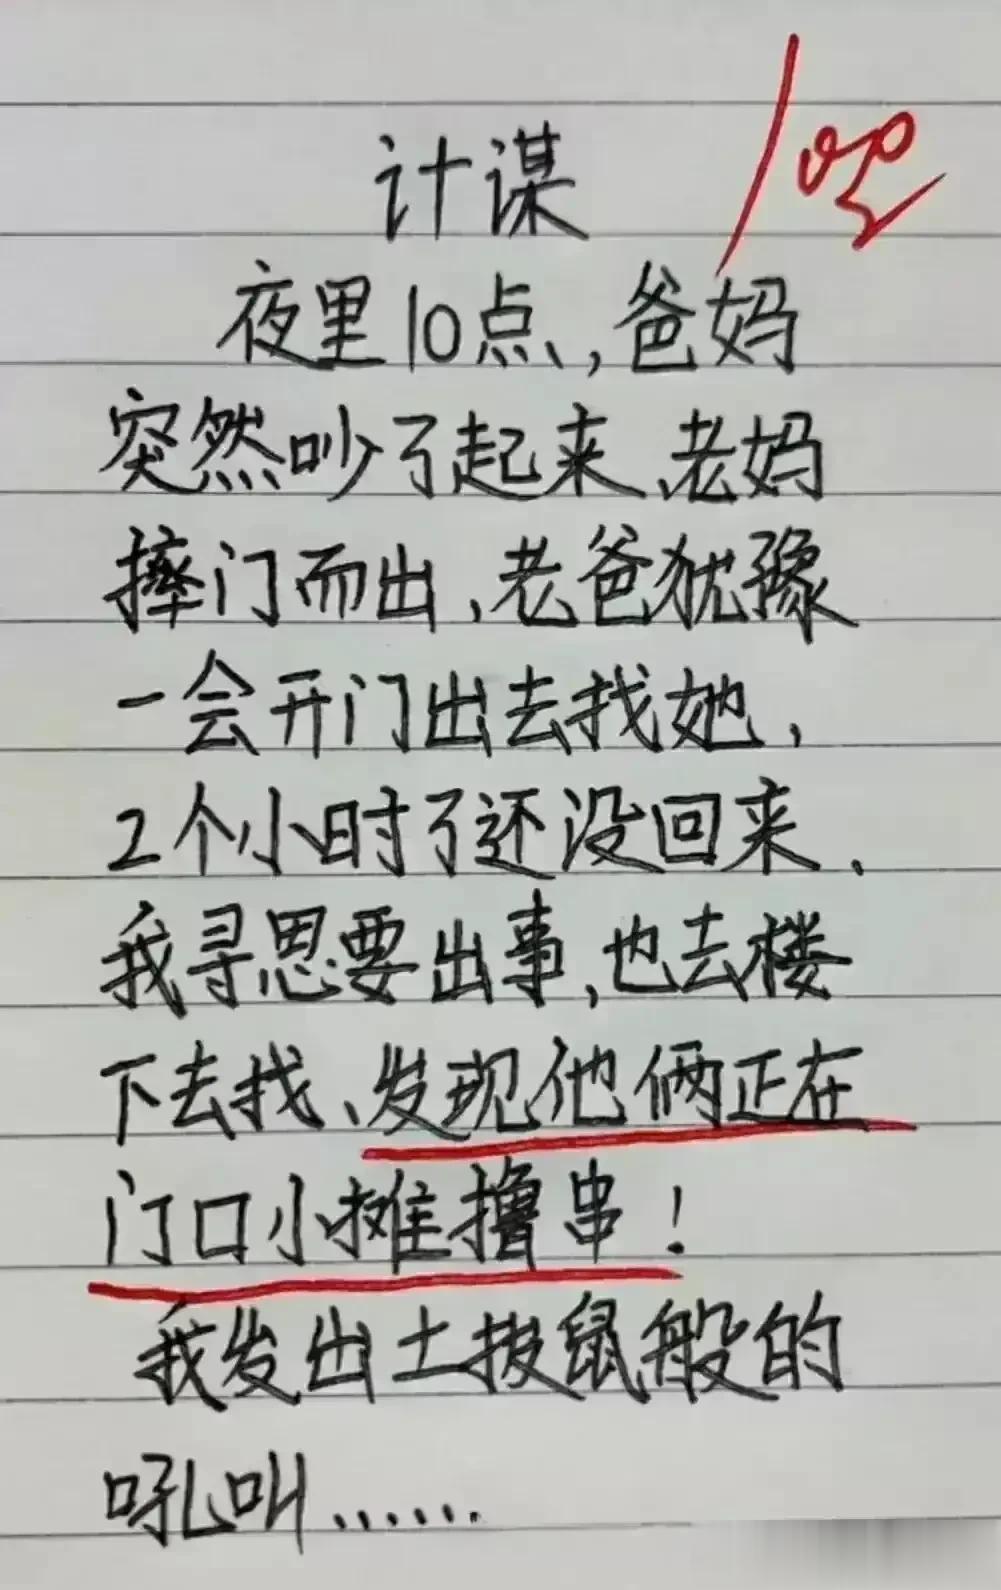 计谋
100
夜里10点,爸妈
突然吵了起来、老妈
摔门而出,老爸犹豫
一会开门出去找她,
2个小时了还没回来、
我寻思要出事,也去楼
下去找、发现他俩正在
门口小摊撸串!
我发出土拨鼠般的
吼叫......